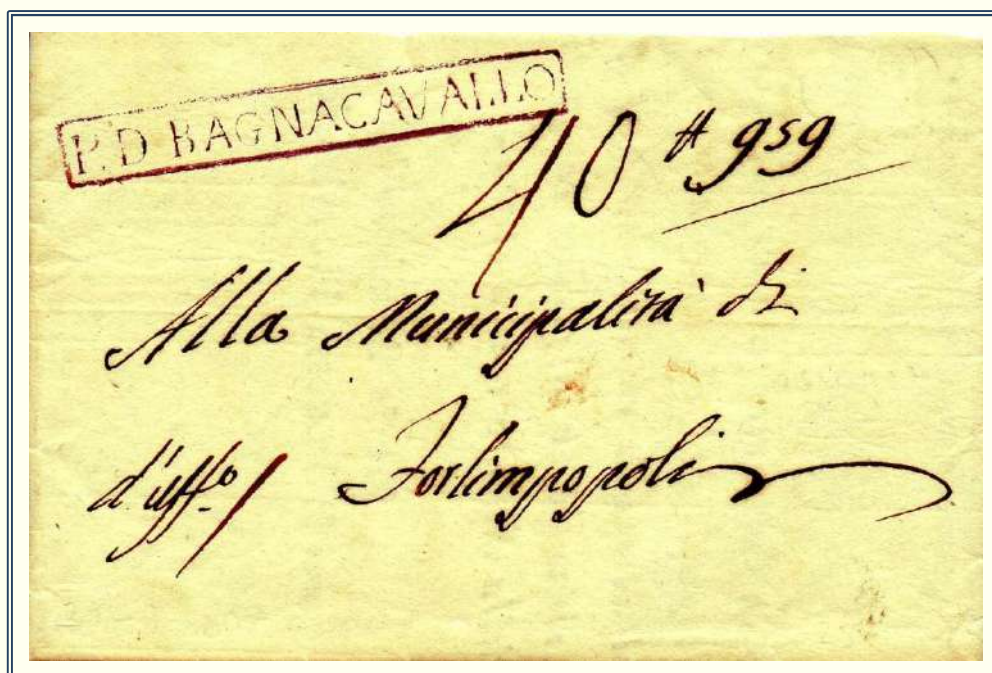 P.D BAGNACAVALLO
40 # 959
Alla Municipalità di
d'uffo. Forlimpopoli